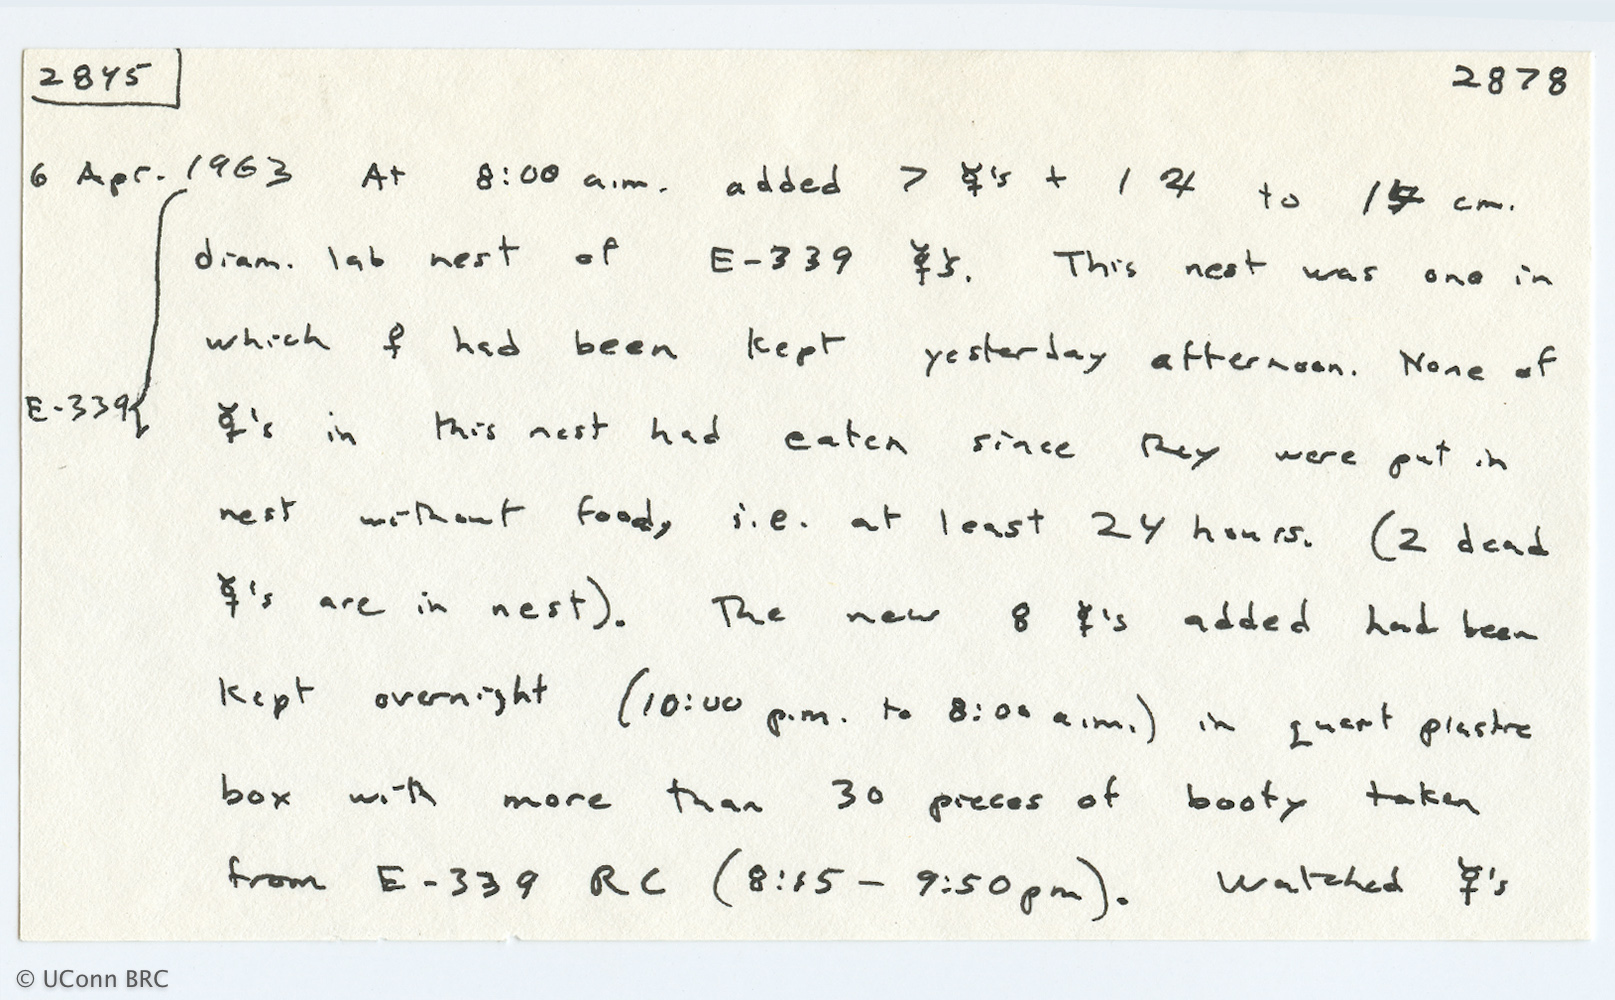 2845 2878
6 Apr. 1963 At 8:00 a.m. added 7 ☿'s + 1 ♃ to cm.
diam. lab nest of E-339 ☿'s. This nest was one in
which ♀ had been kept yesterday afternoon. None of
E-339 ☿'s in this nest had eaten since they were put in
nest without food, i.e. at least 24 hours. (2 dead
☿'s are in nest). The new 8 ☿'s added had been
kept overnight (10:00 p.m. to 8:00 a.m.) in quart plastic
box with more than 30 pieces of booty taken
from E-339 RC (8:15 - 9:50 pm). Watched ☿'s
© UConn BRC